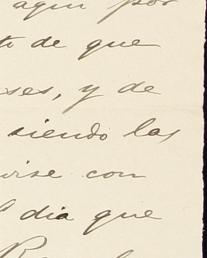 aqui por
de que
ses, y de
siendo las
con
dia que